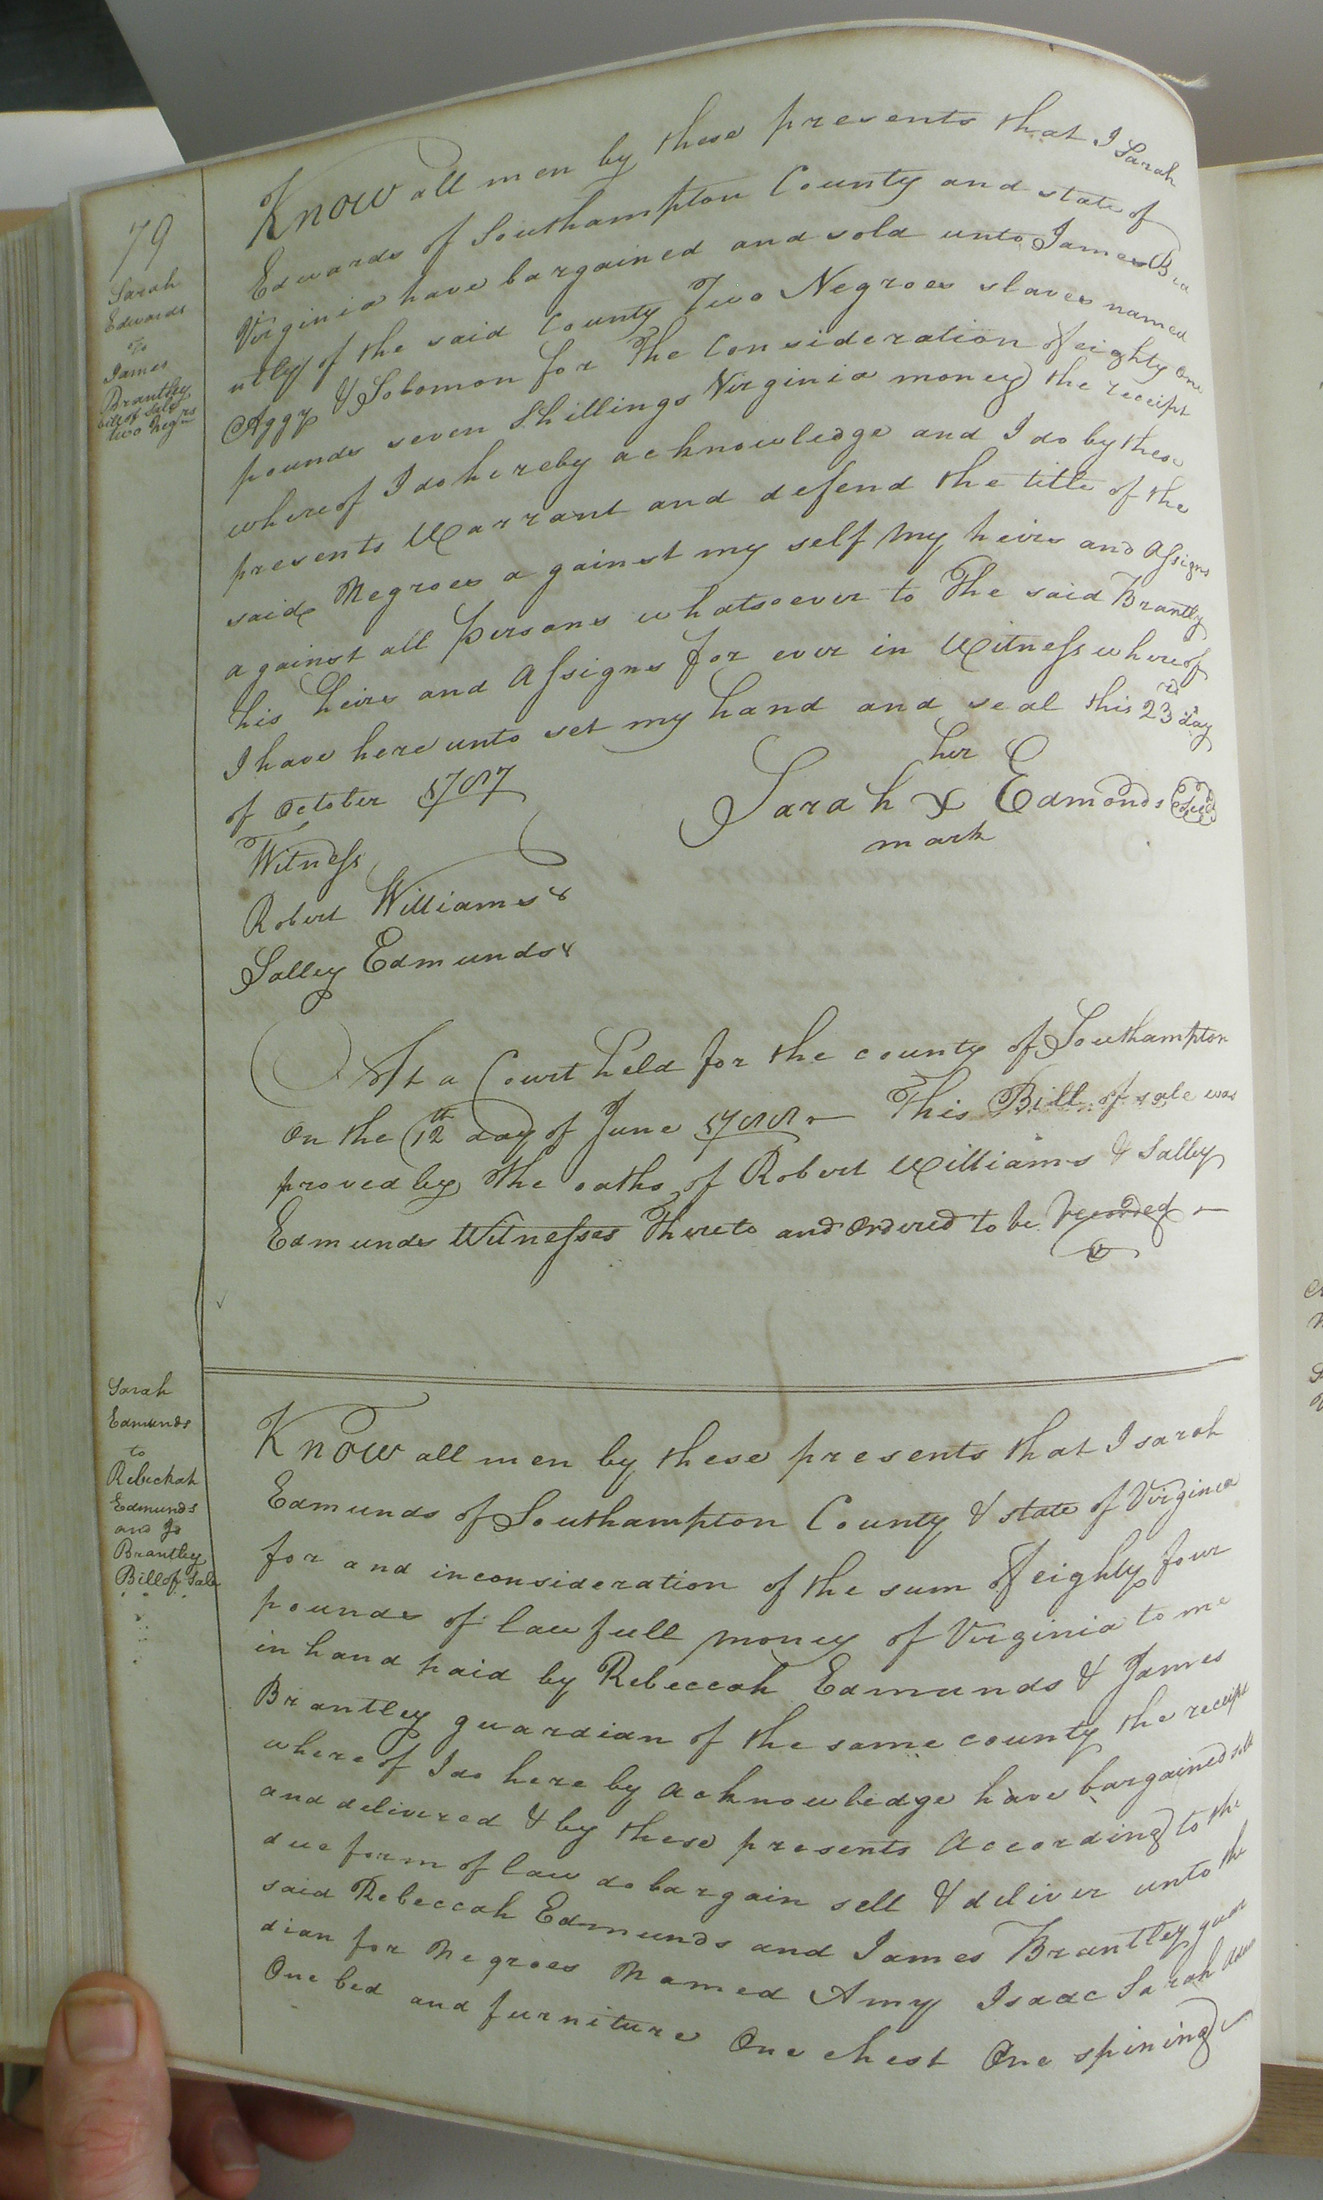 79
Sarah
Edwards
To
James
Brantley
bill of Sale
two Negrs
Know all men by these presents that I Sarah
Edwards of Southampton County and state of
Virginia have bargained and sold unto James Bra
ntly of the said County Two Negroes slaves named
Aggy & Solomon for The Consideration of eighty one
pounds seven Shillings Virginia money the receipt
whereof I do hereby acknowledge and I do by these
presents Warrant and defend the title of the
said Negroes against my self my heirs and Assigns
against all Persons whatsoever to The said Brantly
his heirs and Assigns for ever in Witness whereof
I have hereunto set my hand and seal this 23rd day
of October 1787
her
Sarah X Edmonds Seal
mark
Witness
Robert Williams &
Salley Edmunds &
At a Court held for the county of Southampton
On the 12th day of June 1788 This Bill of sale was
proved by the oaths of Robert Williams & Salley
Edmunds Witnesses Thereto and Ordered to be Recorded
Sarah
Edmunds
to
Rebeckah
Edmunds
and Js
Brantley
Bill of Sale
Know all men by these presents that I sarah
Edmunds of Southampton County & state of Virginia
for and inconsideration of the sum of eighty four
pounds of lawfull money of Virginia to me
in hand paid by Rebeccah Edmunds & James
Brantley guardian of the same county the receipt
where of I do here by acknowledge have bargained sold
and delivered & by these presents According to the
due form of law do bargain sell & deliver unto the
said Rebeccah Edmunds and James Brantley guar
dian for Negroes Named Amy Isaac Sarah
One bed and furniture One chest One spining